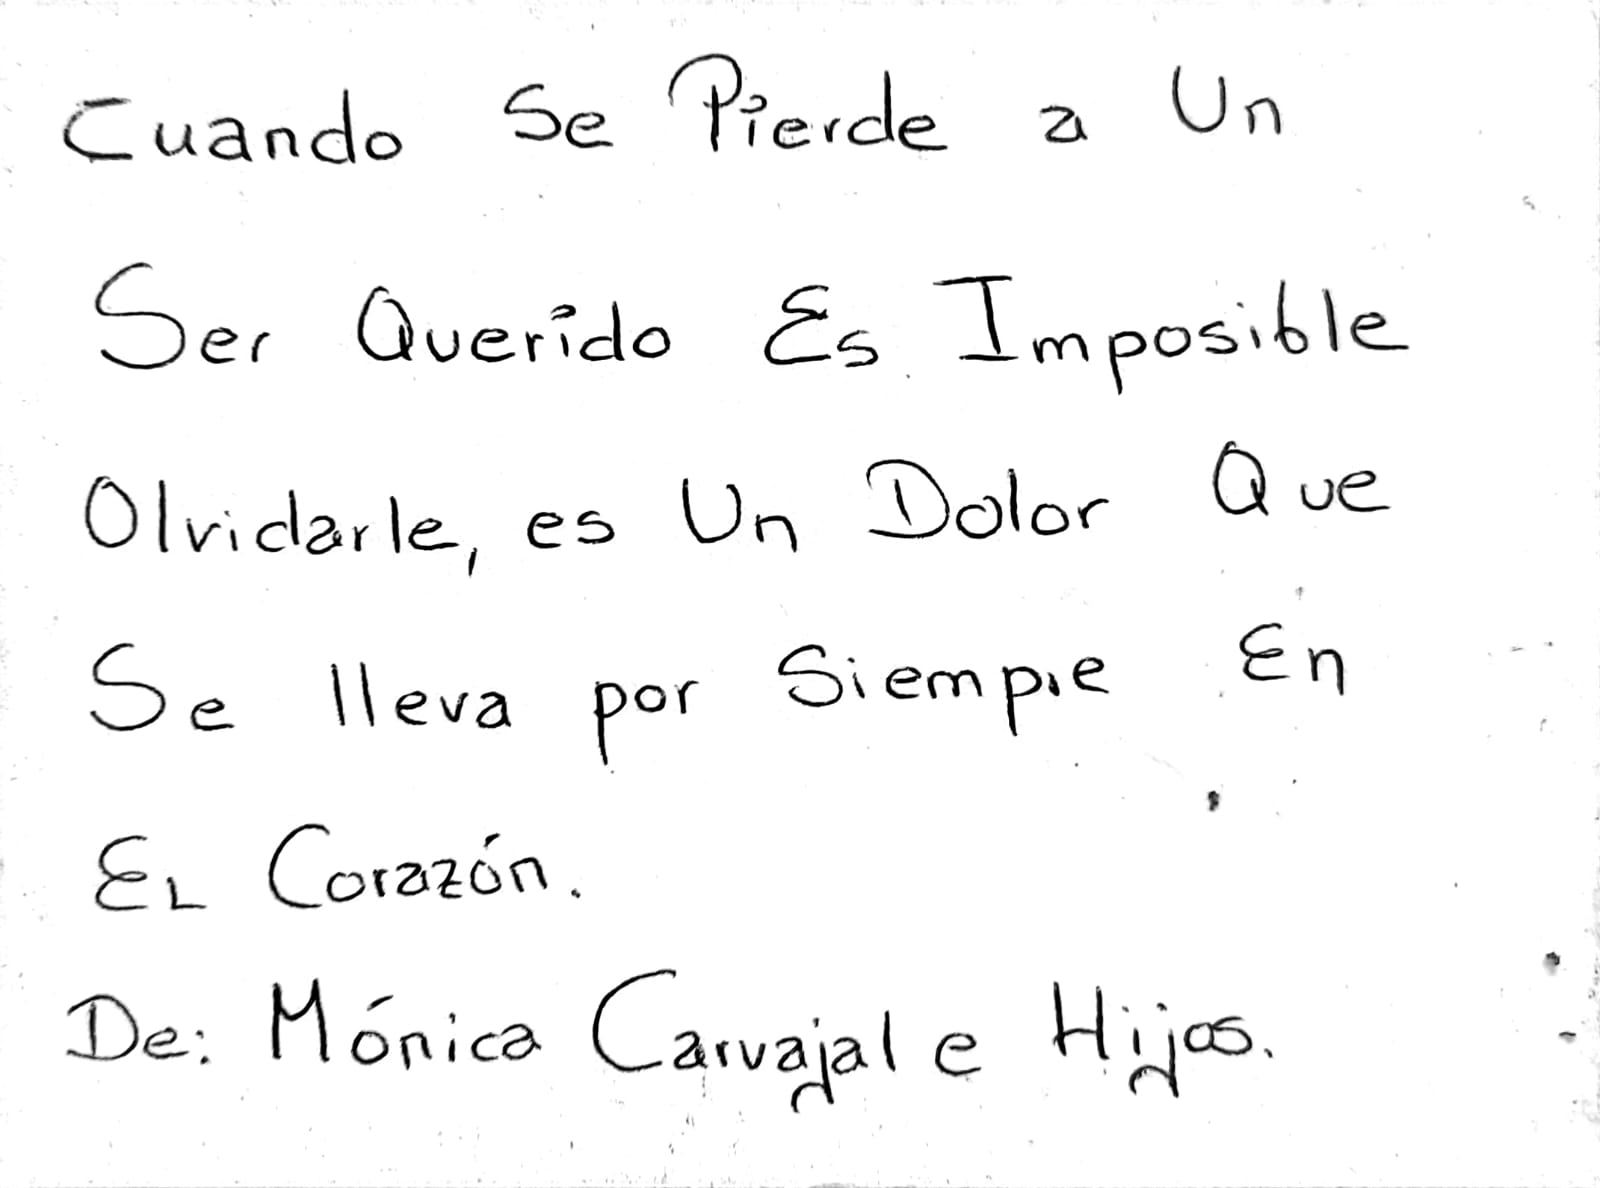 Cuando Se Pierde a Un
Ser Querido Es Imposible
Olvidarle, es Un Dolor Que
Se lleva por Siempre En
EL Corazón.
De: Mónica Carvajal e Hijos.